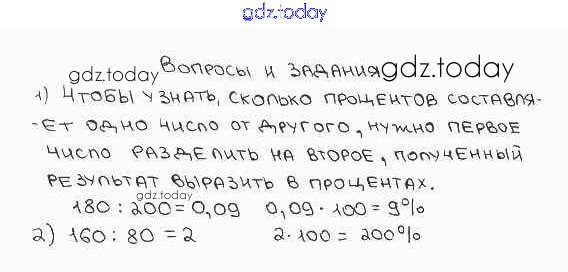 gdz.today
Вопросы и задания
gdz.today gdz.today
1) Чтобы узнать, сколько процентов составля-
-ет одно число от другого, нужно первое
число разделить на второе, полученный
результат выразить в процентах.
gdz.today
180 : 200 = 0,09 0,09 · 100 = 9%
2) 160 : 80 = 2 2 · 100 = 200%